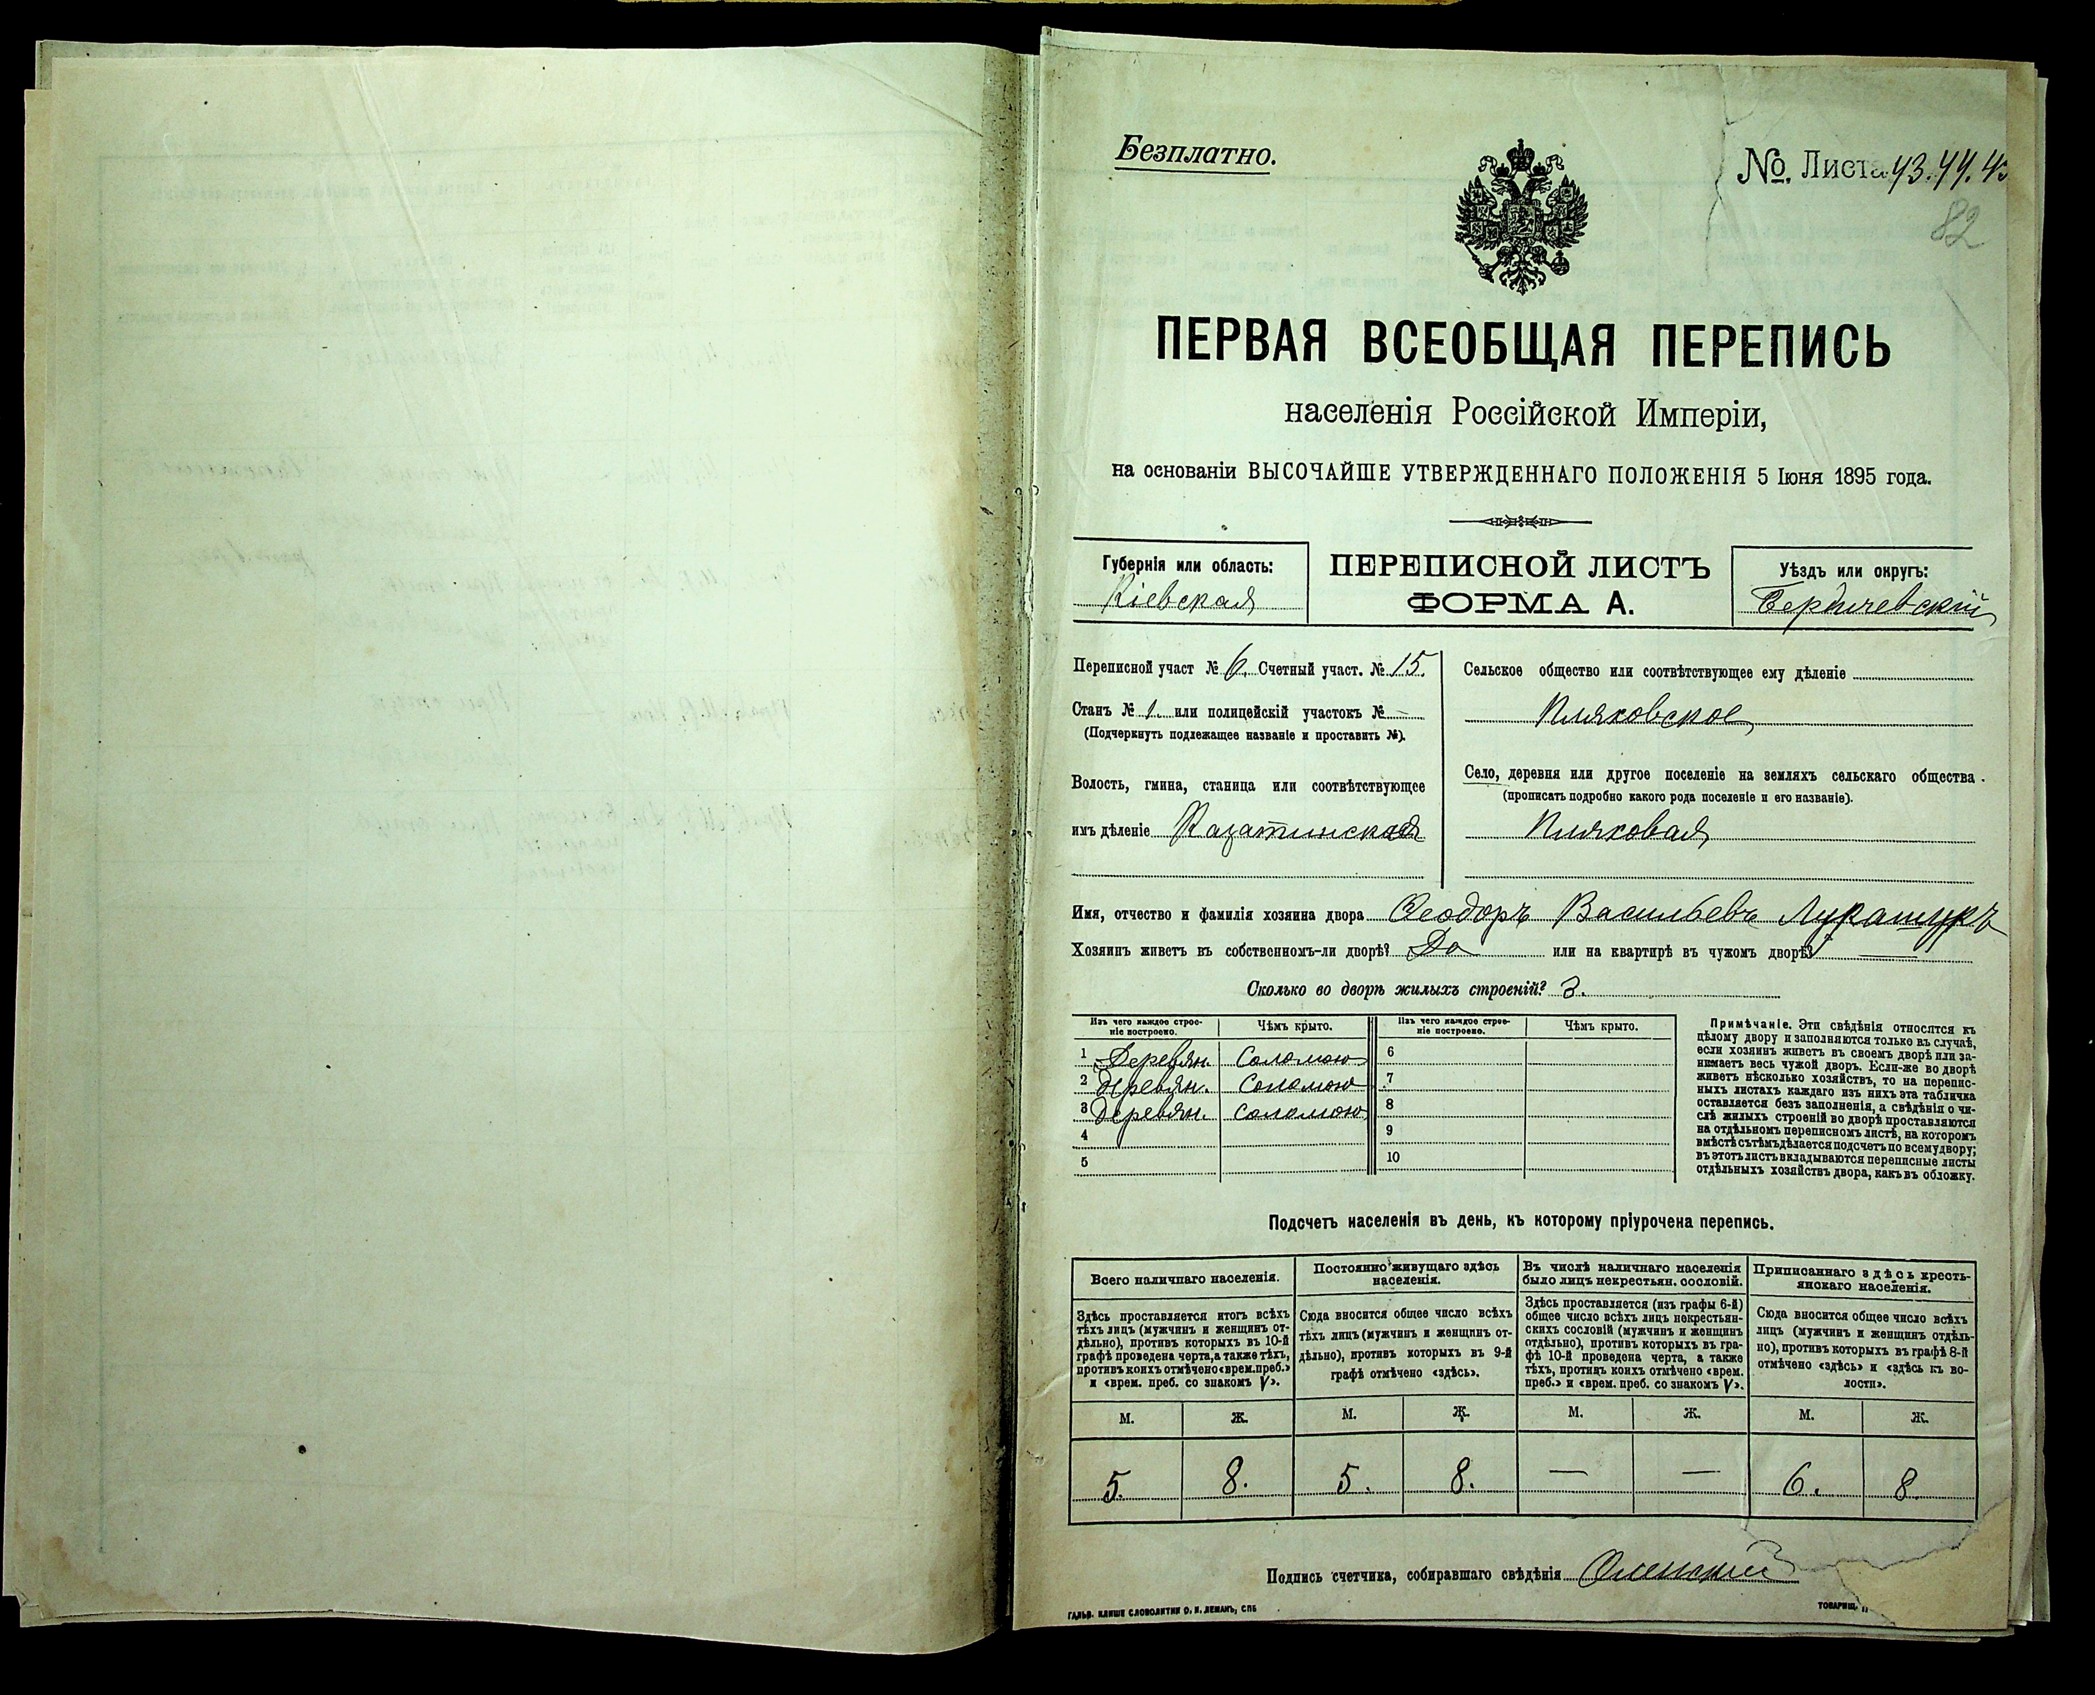 Безплатно.
№. Листа 43.44.45
82
ПЕРВАЯ ВСЕОБЩАЯ ПЕРЕПИСЬ
населенія Россійской Имперіи,
на основаніи ВЫСОЧАЙШЕ УТВЕРЖДЕННАГО ПОЛОЖЕНІЯ 5 Іюня 1895 года.
Губернія или область:
Кіевская
ПЕРЕПИСНОЙ ЛИСТЪ
ФОРМА А.
Уѣздъ или округъ:
Бердичевскій
Переписной участ № 6. Счетный участ. № 15.
Станъ № 1. или полицейскій участокъ № —
(Подчеркнуть подлежащее названіе и проставить №).
Волость, гмина, станица или соотвѣтствующее
имъ дѣленіе Казатинская
Сельское общество или соотвѣтствующее ему дѣленіе
Пляховское
Село, деревня или другое поселеніе на земляхъ сельскаго общества
(прописать подробно какого рода поселеніе и его названіе).
Пляховая
Имя, отчество и фамилія хозяина двора Ѳеодоръ Васильевъ
Хозяинъ живетъ въ собственномъ-ли дворѣ? Да или на квартирѣ въ чужомъ дворѣ? —
Сколько во дворѣ жилыхъ строеній? 3.
Изъ чего каждое строе-
ніе построено.
Чѣмъ крыто.
Изъ чего каждое строе-
ніе построено.
Чѣмъ крыто.
1 Деревян. Соломою 6
2 деревян. Соломою 7
3 деревян. соломою 8
4 9
5 10
Примѣчаніе. Эти свѣдѣнія относятся къ
цѣлому двору и заполняются только въ случаѣ,
если хозяинъ живетъ въ своемъ дворѣ или за-
нимаетъ весь чужой дворъ. Если-же во дворѣ
живетъ нѣсколько хозяйствъ, то на перепис-
ныхъ листахъ каждаго изъ нихъ эта табличка
оставляется безъ заполненія, а свѣдѣнія о чи-
слѣ жилыхъ строеній во дворѣ проставляются
на отдѣльномъ переписномъ листѣ, на которомъ
вмѣстѣ съ тѣмъ дѣлается подсчетъ по всему двору;
въ этотъ листъ вкладываются переписные листы
отдѣльныхъ хозяйствъ двора, какъ въ обложку.
Подсчетъ населенія въ день, къ которому пріурочена перепись.
Всего наличнаго населенія.
Здѣсь проставляется итогъ всѣхъ
тѣхъ лицъ (мужчинъ и женщинъ от-
дѣльно), противъ которыхъ въ 10-й
графѣ проведена черта, а также тѣхъ,
противъ коихъ отмѣчено «врем. преб.»
и «врем. преб. со знакомъ V».
Постоянно живущаго здѣсь
населенія.
Сюда вносится общее число всѣхъ
тѣхъ лицъ (мужчинъ и женщинъ от-
дѣльно), противъ которыхъ въ 9-й
графѣ отмѣчено «здѣсь».
Въ числѣ наличнаго населенія
было лицъ некрестьян. сословій.
Здѣсь проставляется (изъ графы 6-й)
общее число всѣхъ лицъ некрестьян-
скихъ сословій (мужчинъ и женщинъ
отдѣльно), противъ которыхъ въ гра-
фѣ 10-й проведена черта, а также
тѣхъ, противъ коихъ отмѣчено «врем.
преб.» и «врем. преб. со знакомъ V».
Приписаннаго здѣсь кресть-
янскаго населенія.
Сюда вносится общее число всѣхъ
лицъ (мужчинъ и женщинъ отдѣль-
но), противъ которыхъ въ графѣ 8-й
отмѣчено «здѣсь» и «здѣсь въ во-
лости».
М. Ж. М. Ж. М. Ж. М. Ж.
5. 8. 5. 8. — — 6. 8
Подпись счетчика, собиравшаго свѣдѣнія
ГАЛЬВ. КЛИШЕ СЛОВОЛИТНИ О. И. ЛЕМАНЪ, СПБ
ТОВАРИЩ.